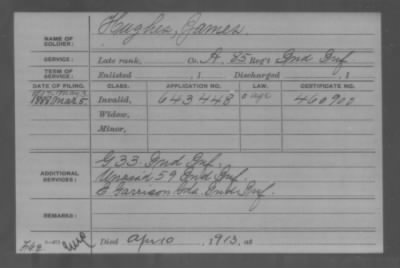 NAME OF SOLDIER: Hughes, James.
SERVICE: Late rank, Co. A. 85 Reg't Ind Inf
TERM OF SERVICE: Enlisted , 1 Discharged , 1
DATE OF FILING. CLASS. APPLICATION NO. LAW. CERTIFICATE NO.
1888 Mar 5 Invalid, 643448 460900
Widow,
Minor,
ADDITIONAL SERVICES: G 33 Ind Inf.
Unassd 59 Ind Inf.
E Garrison Gds. Ind. Inf.
REMARKS:
Died Apr 10, 1913, at